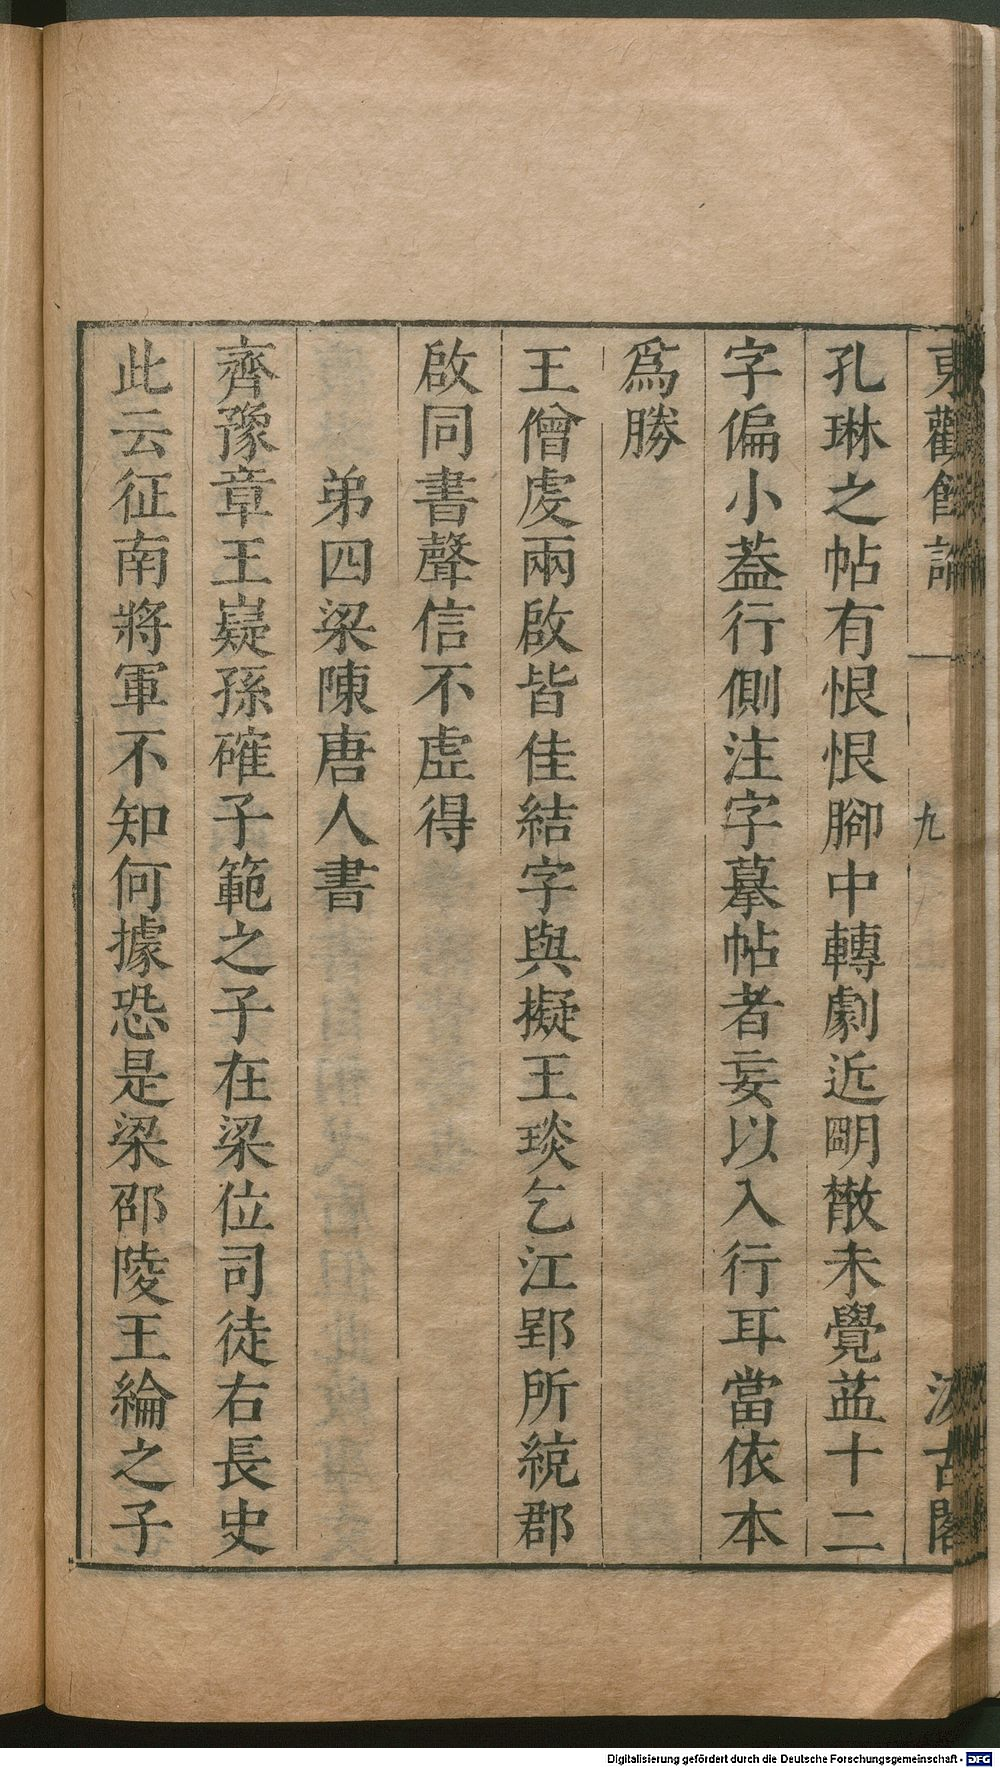 東觀餘論
一
九
汲古閣
孔琳之帖有恨恨腳中轉劇近朙散未覺葢十二
字偏小葢行側注字摹帖者妄以入行耳當依本
爲勝
王僧虔兩啟皆佳結字與擬王琰乞江郢所統郡
啟同書聲信不虛得
弟四梁陳唐人書
齊豫章王嶷孫確子範之子在梁位司徒右長史
此云征南將軍不知何據恐是梁邵陵王綸之子
Digitalisierung gefördert durch die Deutsche Forschungsgemeinschaft - DFG